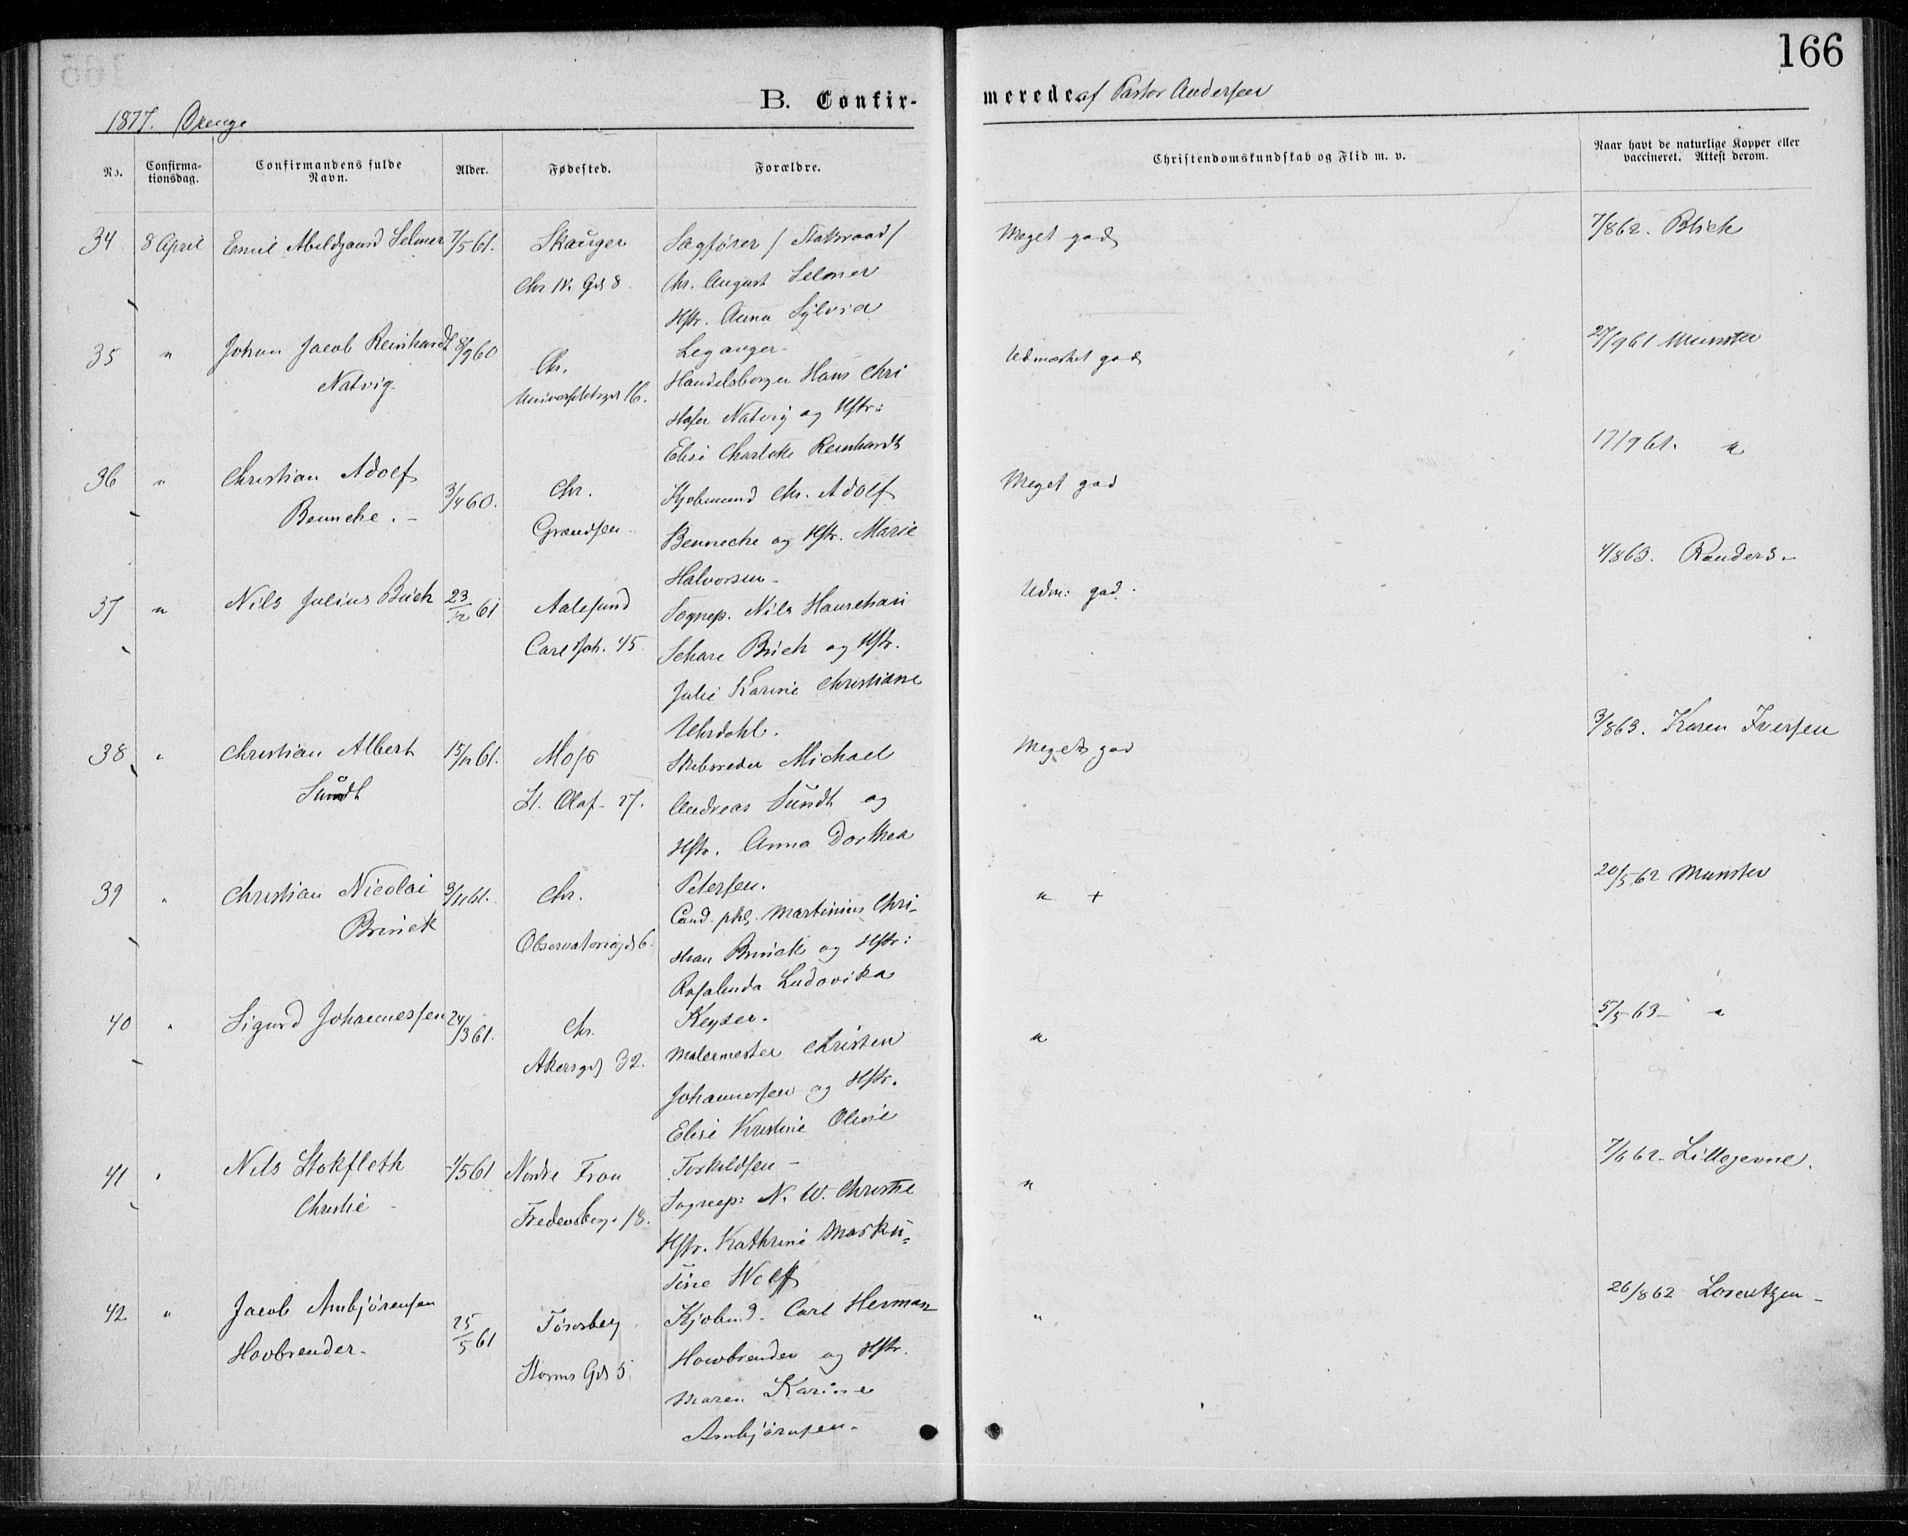 166
B. Confir-
merede af Pastor Andersen
1877. Drenge
No.
Confirma-
tionsdag.
Confirmandens fulde
Navn.
Alder.
Fødested.
Forældre.
Christendomskundskab og Flid m. v.
Naar havt de naturlige Kopper eller
vaccineret. Attest derom.
34 8 April Emil Abildgaard Selmer 7/5 61. Skauger Sagfører / Statsraad / Meget god 7/8 62. Blich
Chr IV. Gd 8 Chr. August Selmer
Hstr. Anna Sylvia
35 " Johan Jacob Reinhardt 8/9 60 Chr. Leganger- Udmærket god 27/9 61 Munster
Natvig. Universitetsgd 16. Handelsborger Hans Chri
stofer Natvig og Hstr:
Elise Charlotte Reinhardt
36 " Christian Adolf 3/4 60. Chr. Kjøbmand Chr. Adolf Meget god 17/9 61. "
Bennche. - Grændsen Bennecke og Hstr. Marie
Halvorsen-
37 " Nils Julius 23/12 61 Aalesund Sognep. Nils Udm: god. 4/8 63. Randers-
Carl Joh. 45 og Hstr.
Julie Karine Christiane
Uhrdahl.
38 " Christian Albert 15/11 61. Moss Skibsreder Michael Meget god 3/8 63. Karen Iversen
Sundt St. Olaf- 27. Andreas Sundt og
Hstr. Anna Dorthea
39 " Christian Nicolai 9/11 61. Chr. Petersen. " + 20/5 62 Munster
Brinck Observatoriegd 6. Cand. phil. Martinius Chri-
stian Brinck og Hstr:
Rosalinda Ludovika
40 " Sigurd Johannessen 24/3 61. Chr. Keyser. " 5/5 63- "
Akersgd 32. Malermester Christen
Johannessen og Hstr.
Elise Kristine Oline
41 " Nils Stokfleth 4/5 61 Nordre Fron Torkildsen- " 7/6 62- Lillegevne.
Christie - Fredensborg. 18. Sognep: N. W. Christie
Hstr. Kathrine
Wolff
42 " Jacob Ambjørensen 25/5 61 Tønsberg Kjøbmd. Carl Herman " 26/8 62 Lorentzen-
Hovbrender- Storms Gd 5 Howbrender og Hstr.
Maren Karine
Ambjørnsen-